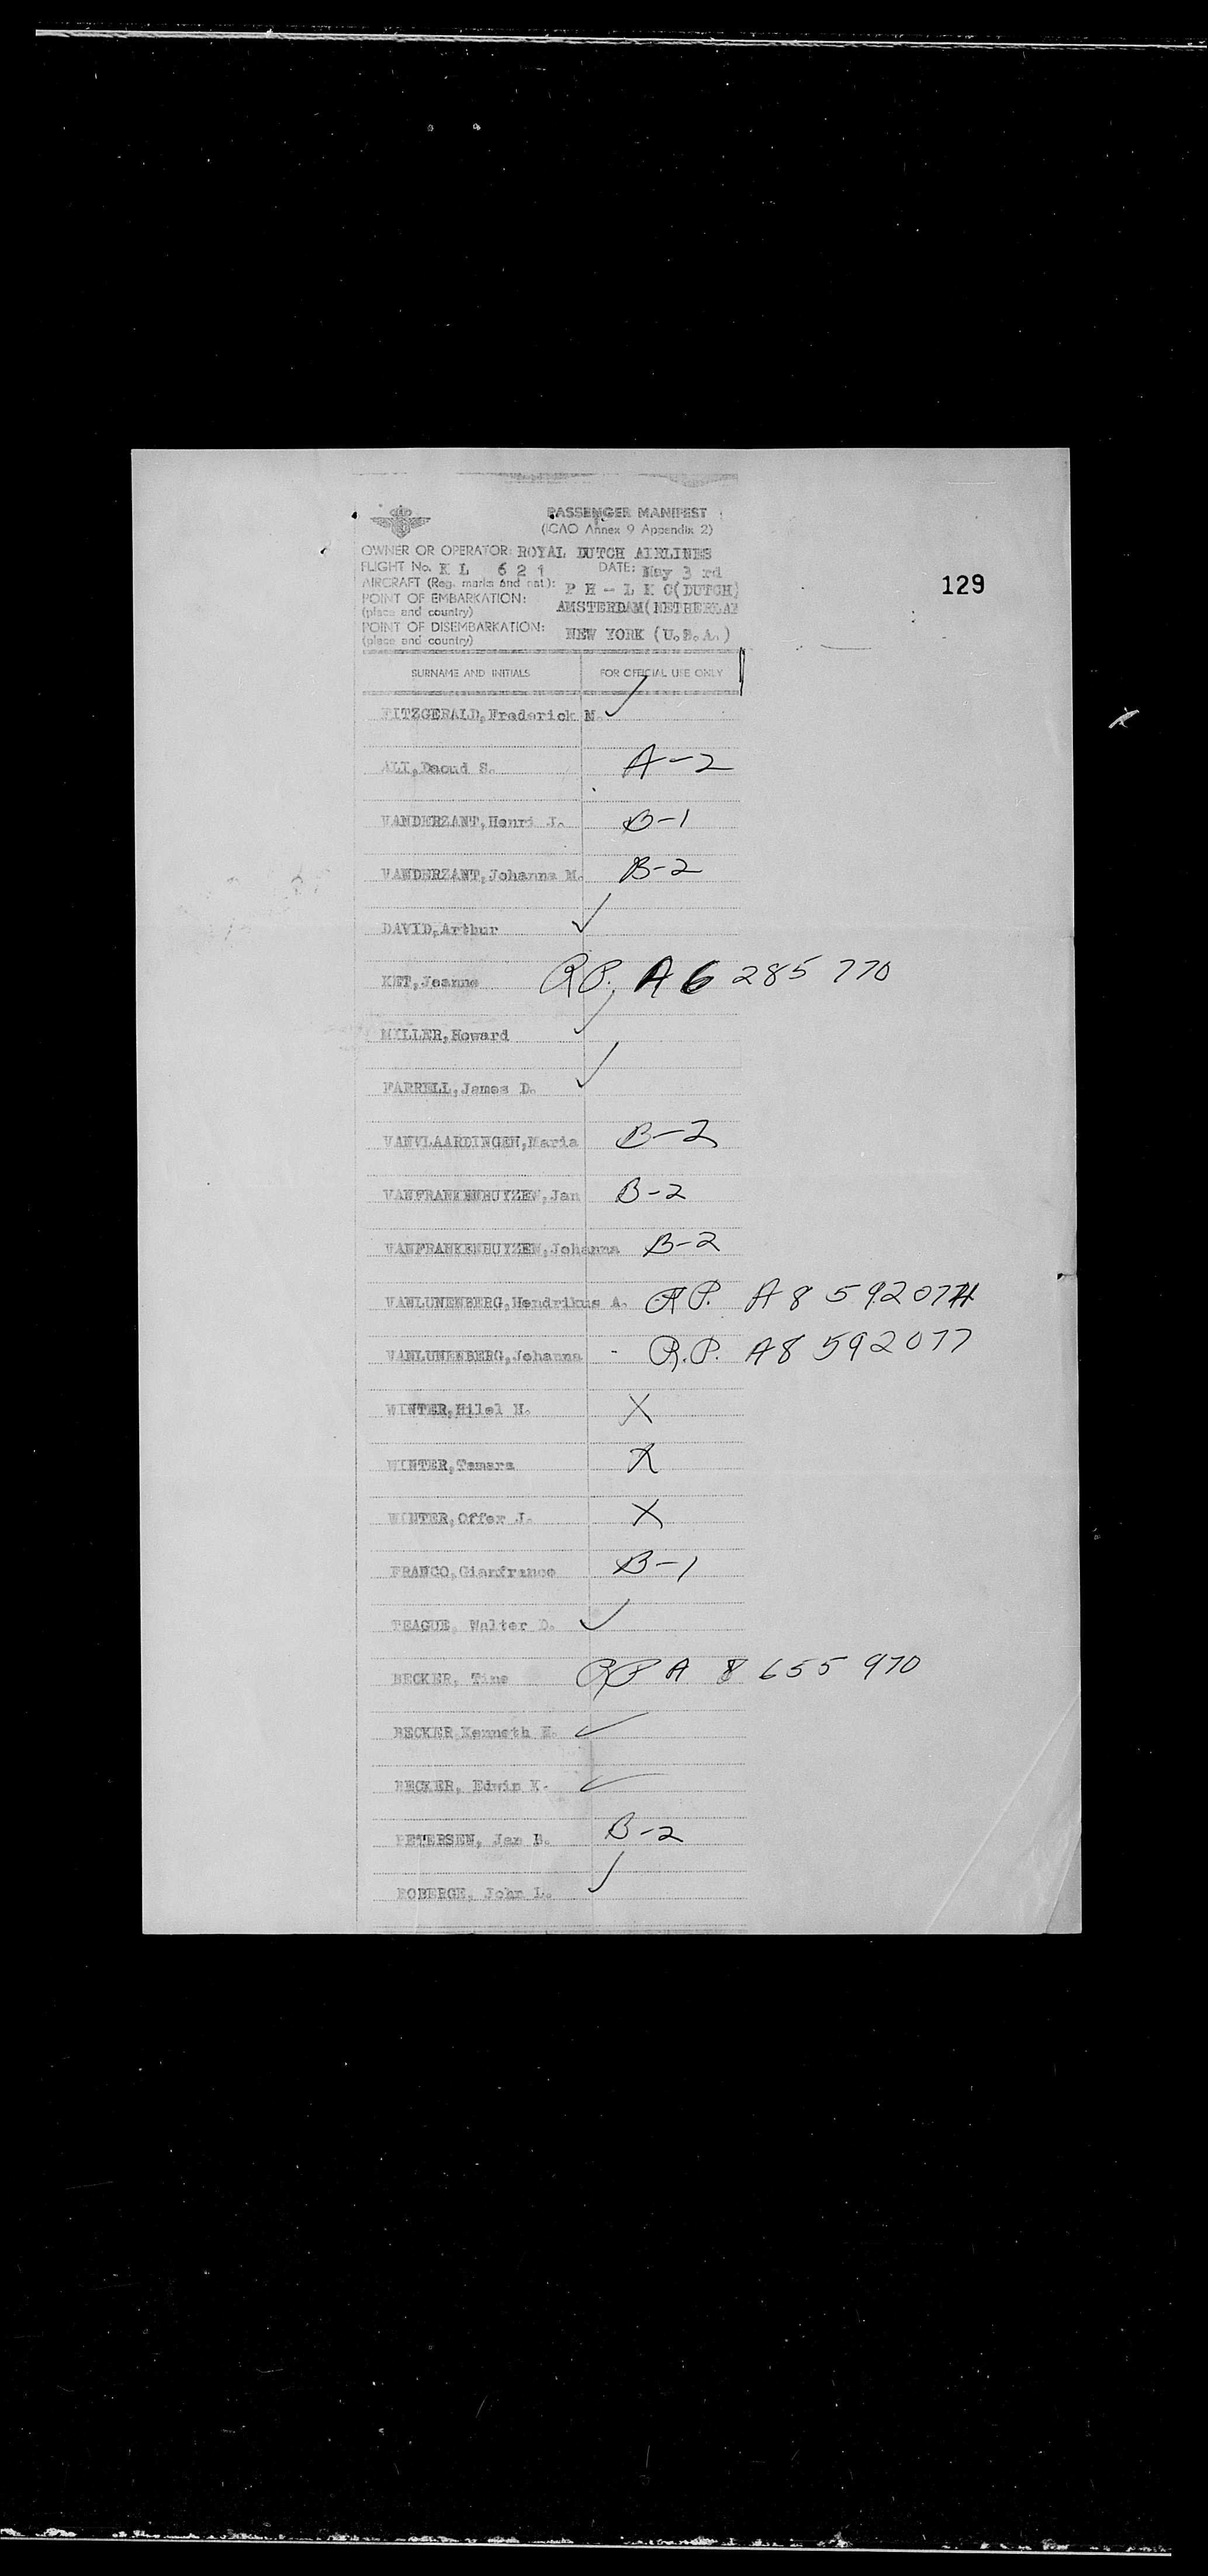 PASSENGER MANIFEST
(ICAO Annex 9 Appendix 2)
OWNER OR OPERATOR: ROYAL DUTCH AIRLINES
FLIGHT No. K L 6 2 1 DATE: May 3 rd
AIRCRAFT (Reg. marks and nat): P H - L K C(DUTCH)
129
POINT OF EMBARKATION: AMSTERDAM(NETHERLAN
(place and country)
POINT OF DISEMBARKATION: NEW YORK (U.S.A.)
(place and country)
SURNAME AND INITIALS FOR OFFICIAL USE ONLY
FITZGERALD,Frederick M. ✓
ALI,Daoud S. A-2
VANDERZANT,Henri J. B-1
VANDERZANT,Johanna M. B-2
DAVID,Arthur ✓
KET,Jeanne R.P. A6 285 770
MILLER,Howard ✓
FARRELL,James D. ✓
VANVLAARDINGEN,Maria B-2
VANFRANKENHUYZEN,Jan B-2
VANFRANKENHUYZEN,Johanna B-2
VANLUNENBERG,Hendrikus A. R.P. A8 592
VANLUNENBERG,Johanna - R.P. A8 592 077
WINTER,Hilel H. X
WINTER,Tamara X
WINTER,Offer J. X
FRANCO,Gianfranco B-1
TEAGUE, Walter D. ✓
BECKER, Tine RP A 8 655 970
BECKER Kenneth H. ✓
BECKER, Edwin K. ✓
PETERSEN, Jan B. B-2
ROBERGE, John L. ✓